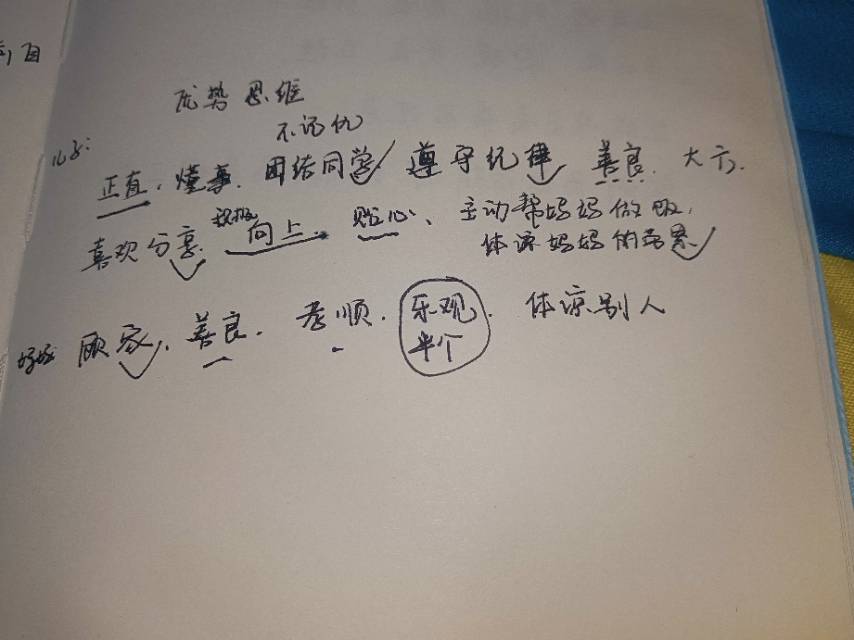 优势思维
不记仇
儿子:
正直、懂事、团结同学 遵守纪律 善良、大方.
积极
喜欢分享、向上、贴心、主动帮妈妈做饭,
体谅妈妈的劳累
妈妈 顾家、善良、孝顺、乐观、体谅别人
半个